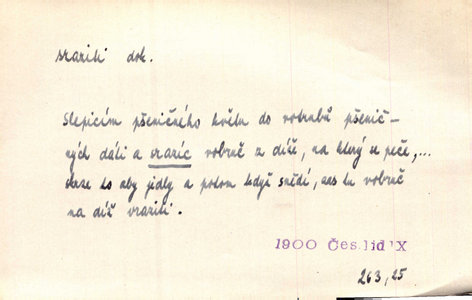 sraziti dok.
Slepicím pšeničného květu do votrubů pšenič-
ných dáti a srazíc vobruč z díže, na který se peče,...
skrze to aby jídly a potom když snědí, zas tu vobruč
na díž vraziti.
1900 Čes.lid IX
263,25